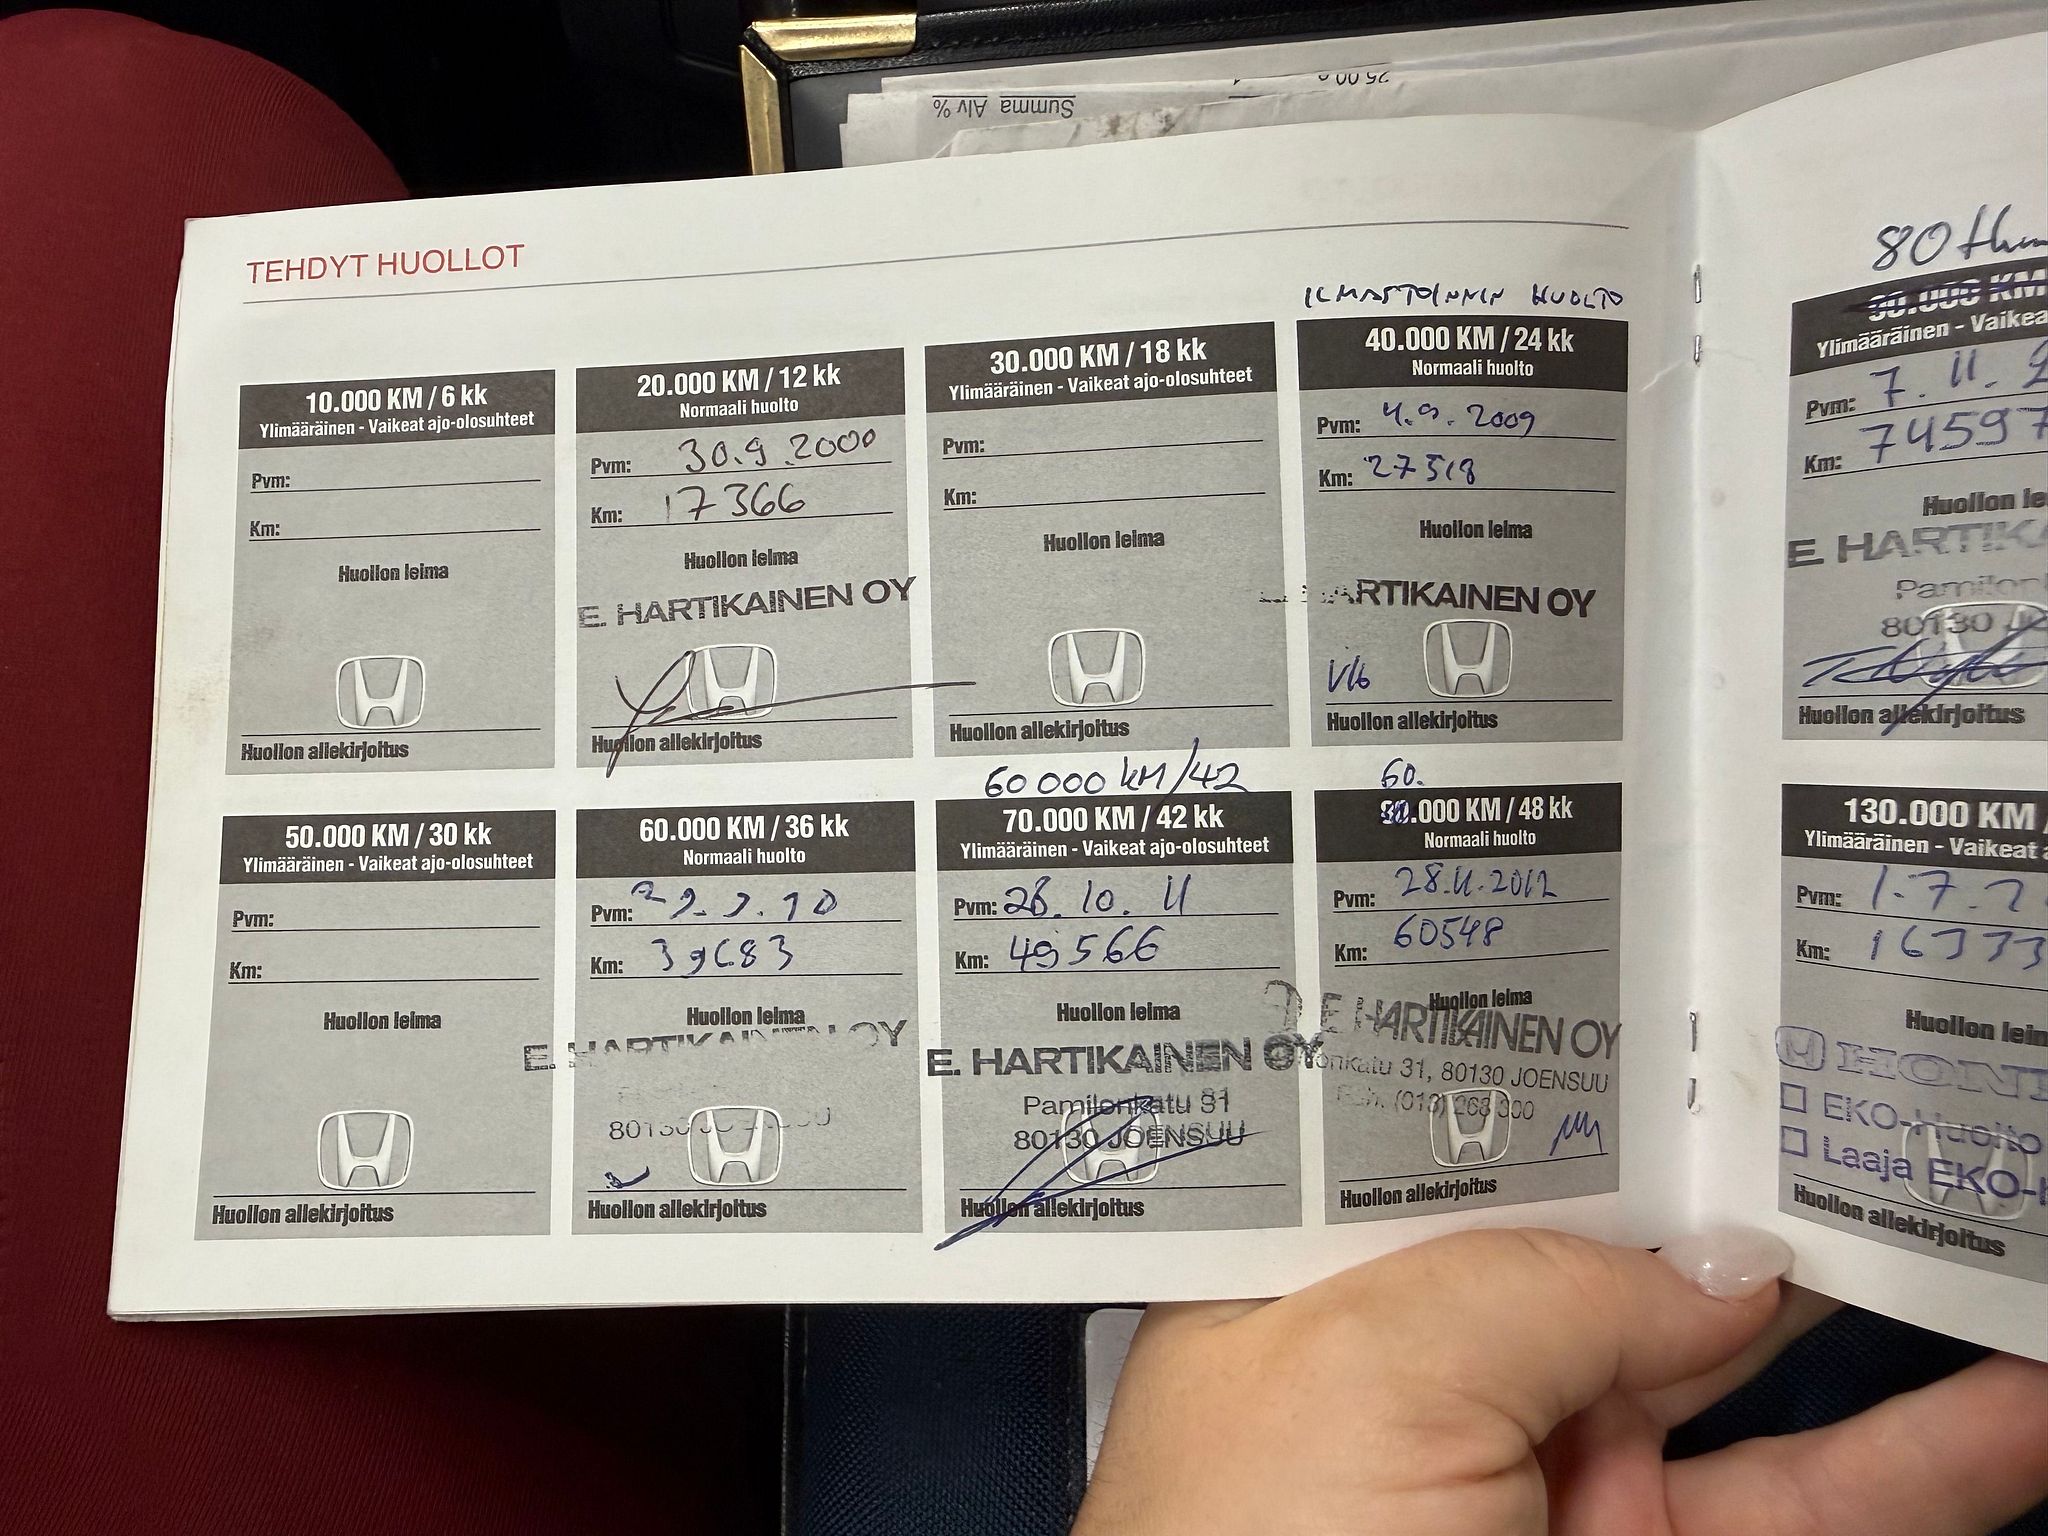 Summa Alv %
25.00
TEHDYT HUOLLOT
10.000 KM / 6 kk
Ylimääräinen - Vaikeat ajo-olosuhteet
Pvm:
Km:
Huollon leima
Huollon allekirjoitus
20.000 KM / 12 kk
Normaali huolto
Pvm: 30.9.2000
Km: 17366
Huollon leima
E. HARTIKAINEN OY
Huollon allekirjoitus
30.000 KM / 18 kk
Ylimääräinen - Vaikeat ajo-olosuhteet
Pvm:
Km:
Huollon leima
Huollon allekirjoitus
ILMASTOINNIN HUOLTO
40.000 KM / 24 kk
Normaali huolto
Pvm: 4.9.2009
Km: 27518
Huollon leima
HARTIKAINEN OY
Huollon allekirjoitus
50.000 KM / 30 kk
Ylimääräinen - Vaikeat ajo-olosuhteet
Pvm:
Km:
Huollon leima
Huollon allekirjoitus
60.000 KM / 36 kk
Normaali huolto
Pvm:
Km: 39683
Huollon leima
E. HARTIKAINEN OY
80130 JOENSUU
Huollon allekirjoitus
60 000 KM/42
70.000 KM / 42 kk
Ylimääräinen - Vaikeat ajo-olosuhteet
Pvm: 28.10.11
Km: 49566
Huollon leima
E. HARTIKAINEN OY
Pamilonkatu 31
80130 JOENSUU
Huollon allekirjoitus
60.
.000 KM / 48 kk
Normaali huolto
Pvm: 28.11.2012
Km: 60548
Huollon leima
E HARTIKAINEN OY
onkatu 31, 80130 JOENSUU
(013) 268 300
Huollon allekirjoitus
80 th
90.000 KM
Ylimääräinen - Vaikea
Pvm: 7.11.2
Km: 74597
Huollon lei
E HARTIKA
Pamilonk
80130 JO
Huollon allekirjoitus
130.000 KM /
Ylimääräinen - Vaikeat a
Pvm: 1.7.2
Km: 16333
Huollon leim
HON
EKO-Huolto
Laaja EKO-H
Huollon allekirjoitus